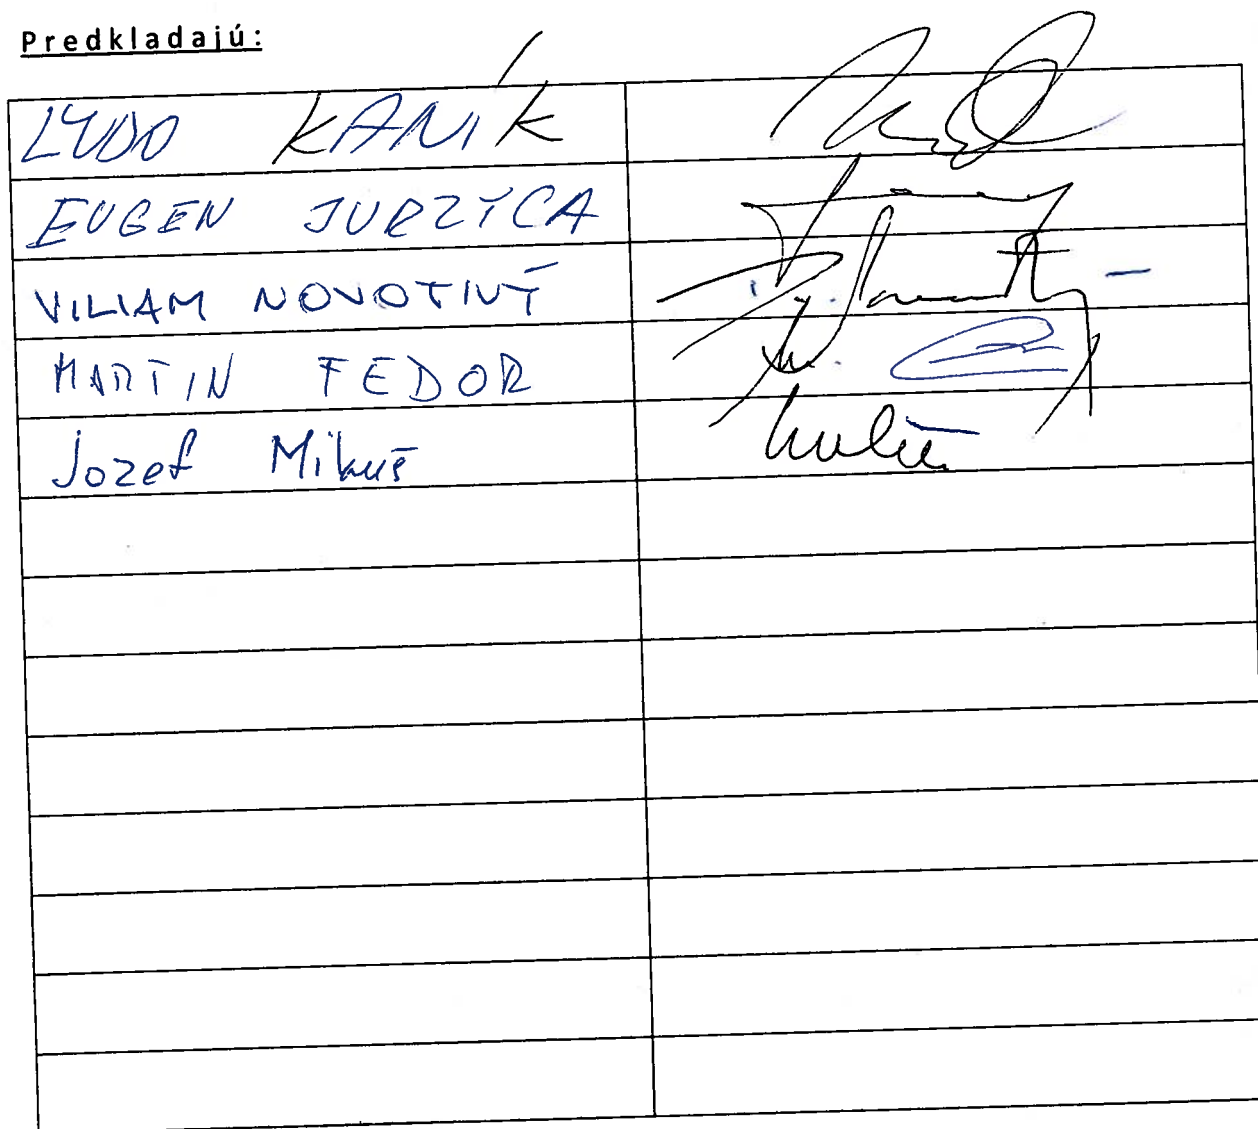 Predkladajú:
ĽUDO KANÍK
EUGEN JURZYCA
VILIAM NOVOTNÝ
MARTIN FEDOR
Jozef Mikuš